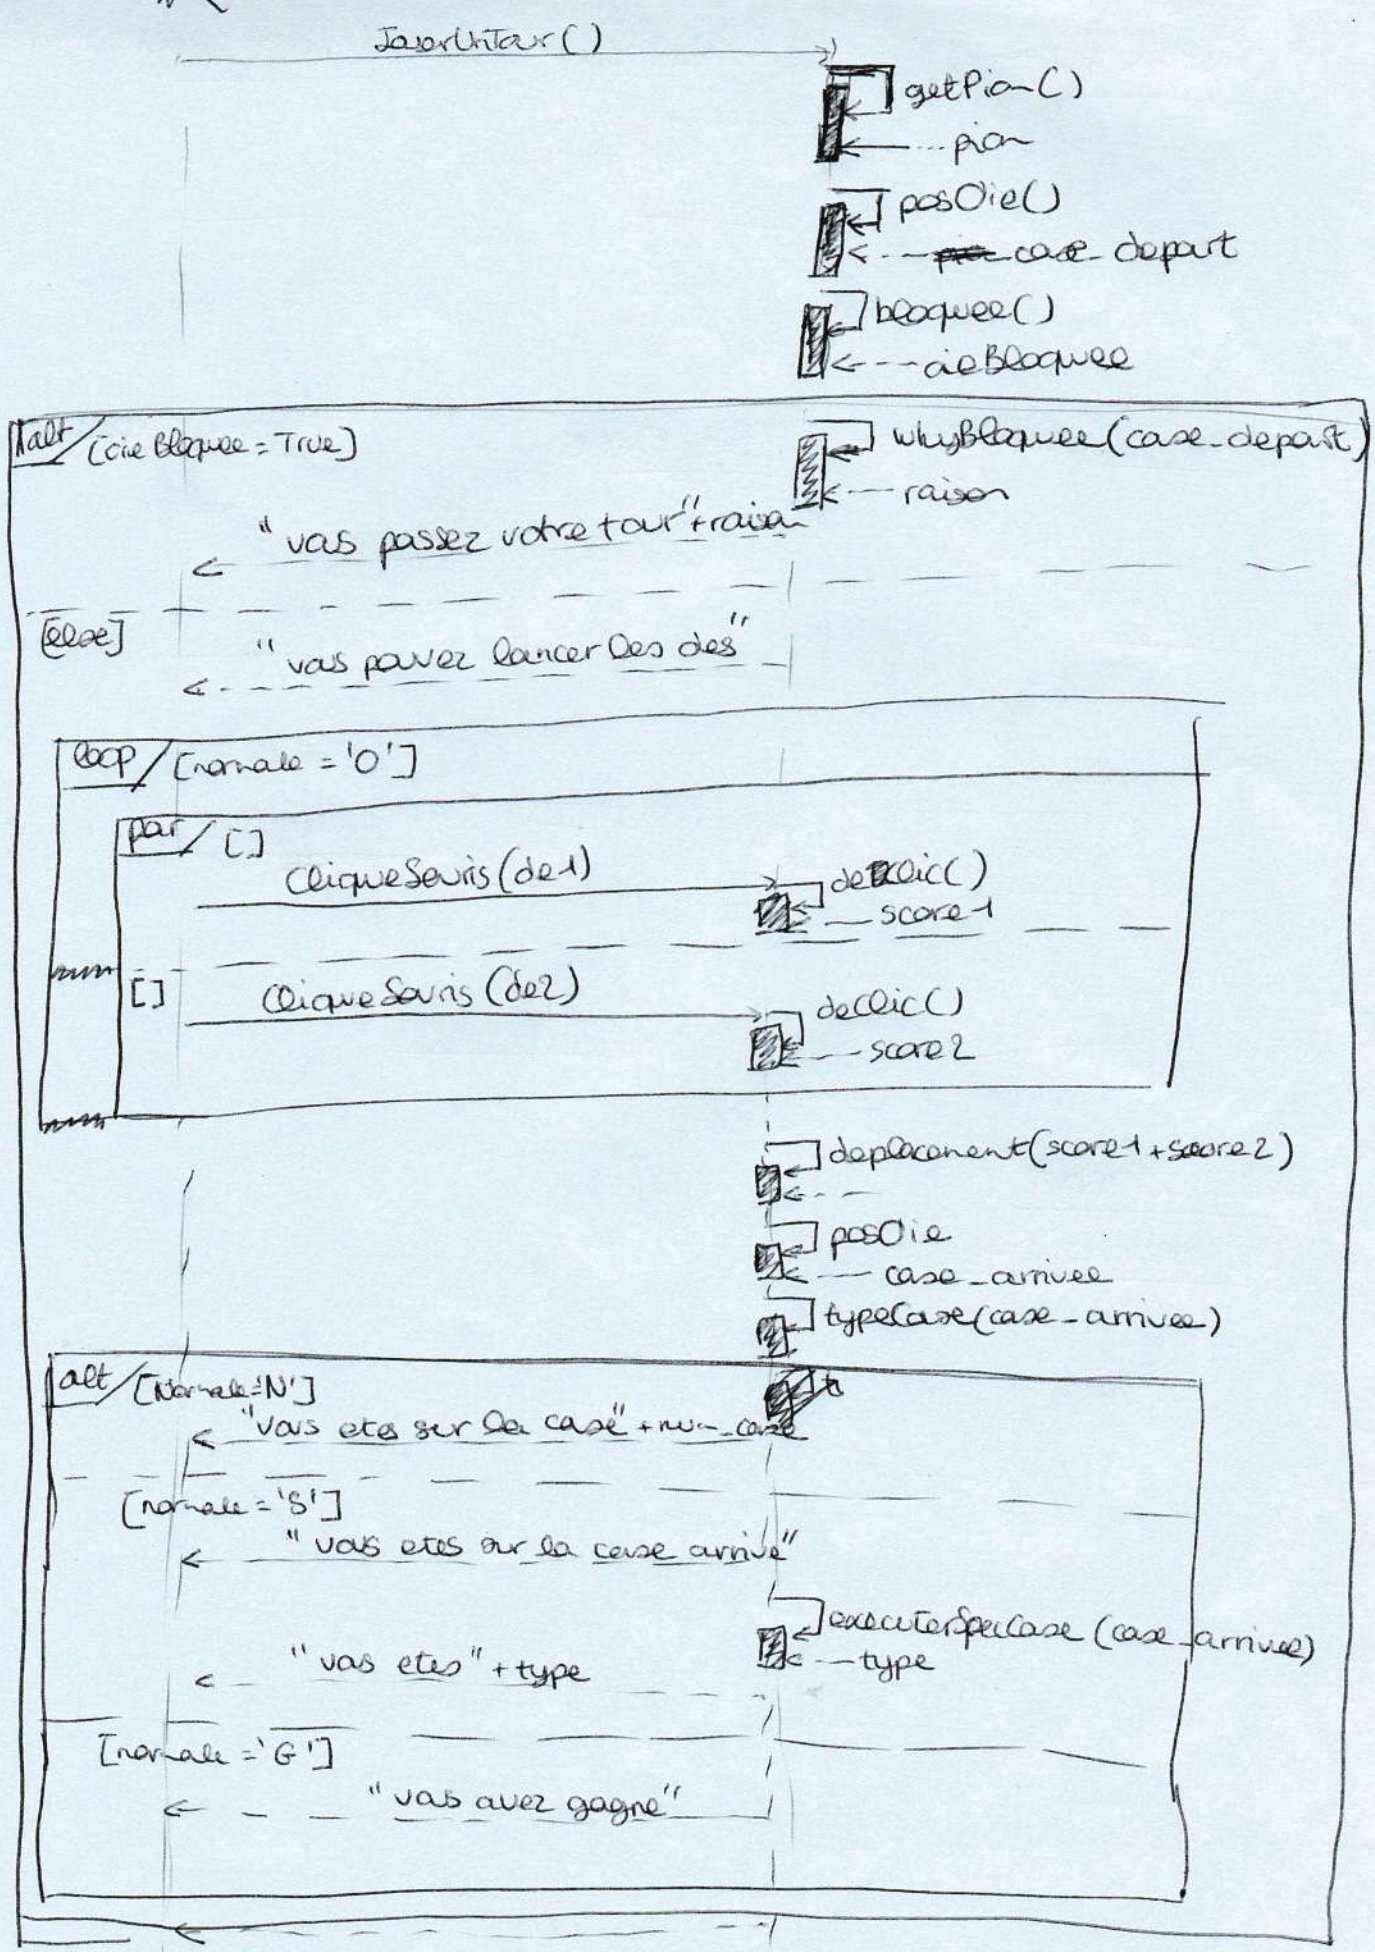 JouerUnTour()
getPion()
pion
posOie()
case_depart
bloquee()
oieBloquee
alt [oieBloquee = True]
whyBloquee(case_depart)
raison
"vous passez votre tour" + raison
[else]
"vous pouvez lancer les des"
loop [normale = 'O']
par []
CliqueSouris(de1)
deClic()
score1
[]
CliqueSouris(de2)
deClic()
score2
deplacement(score1+score2)
posOie
case_arrivee
typeCase(case_arrivee)
alt [Normale='N']
"vous etes sur la case" + num_case
[normale = 'S']
"vous etes sur la case arrive"
executerSpeCase (case_arrivee)
type
"vous etes" + type
[normale = 'G']
"vous avez gagne"